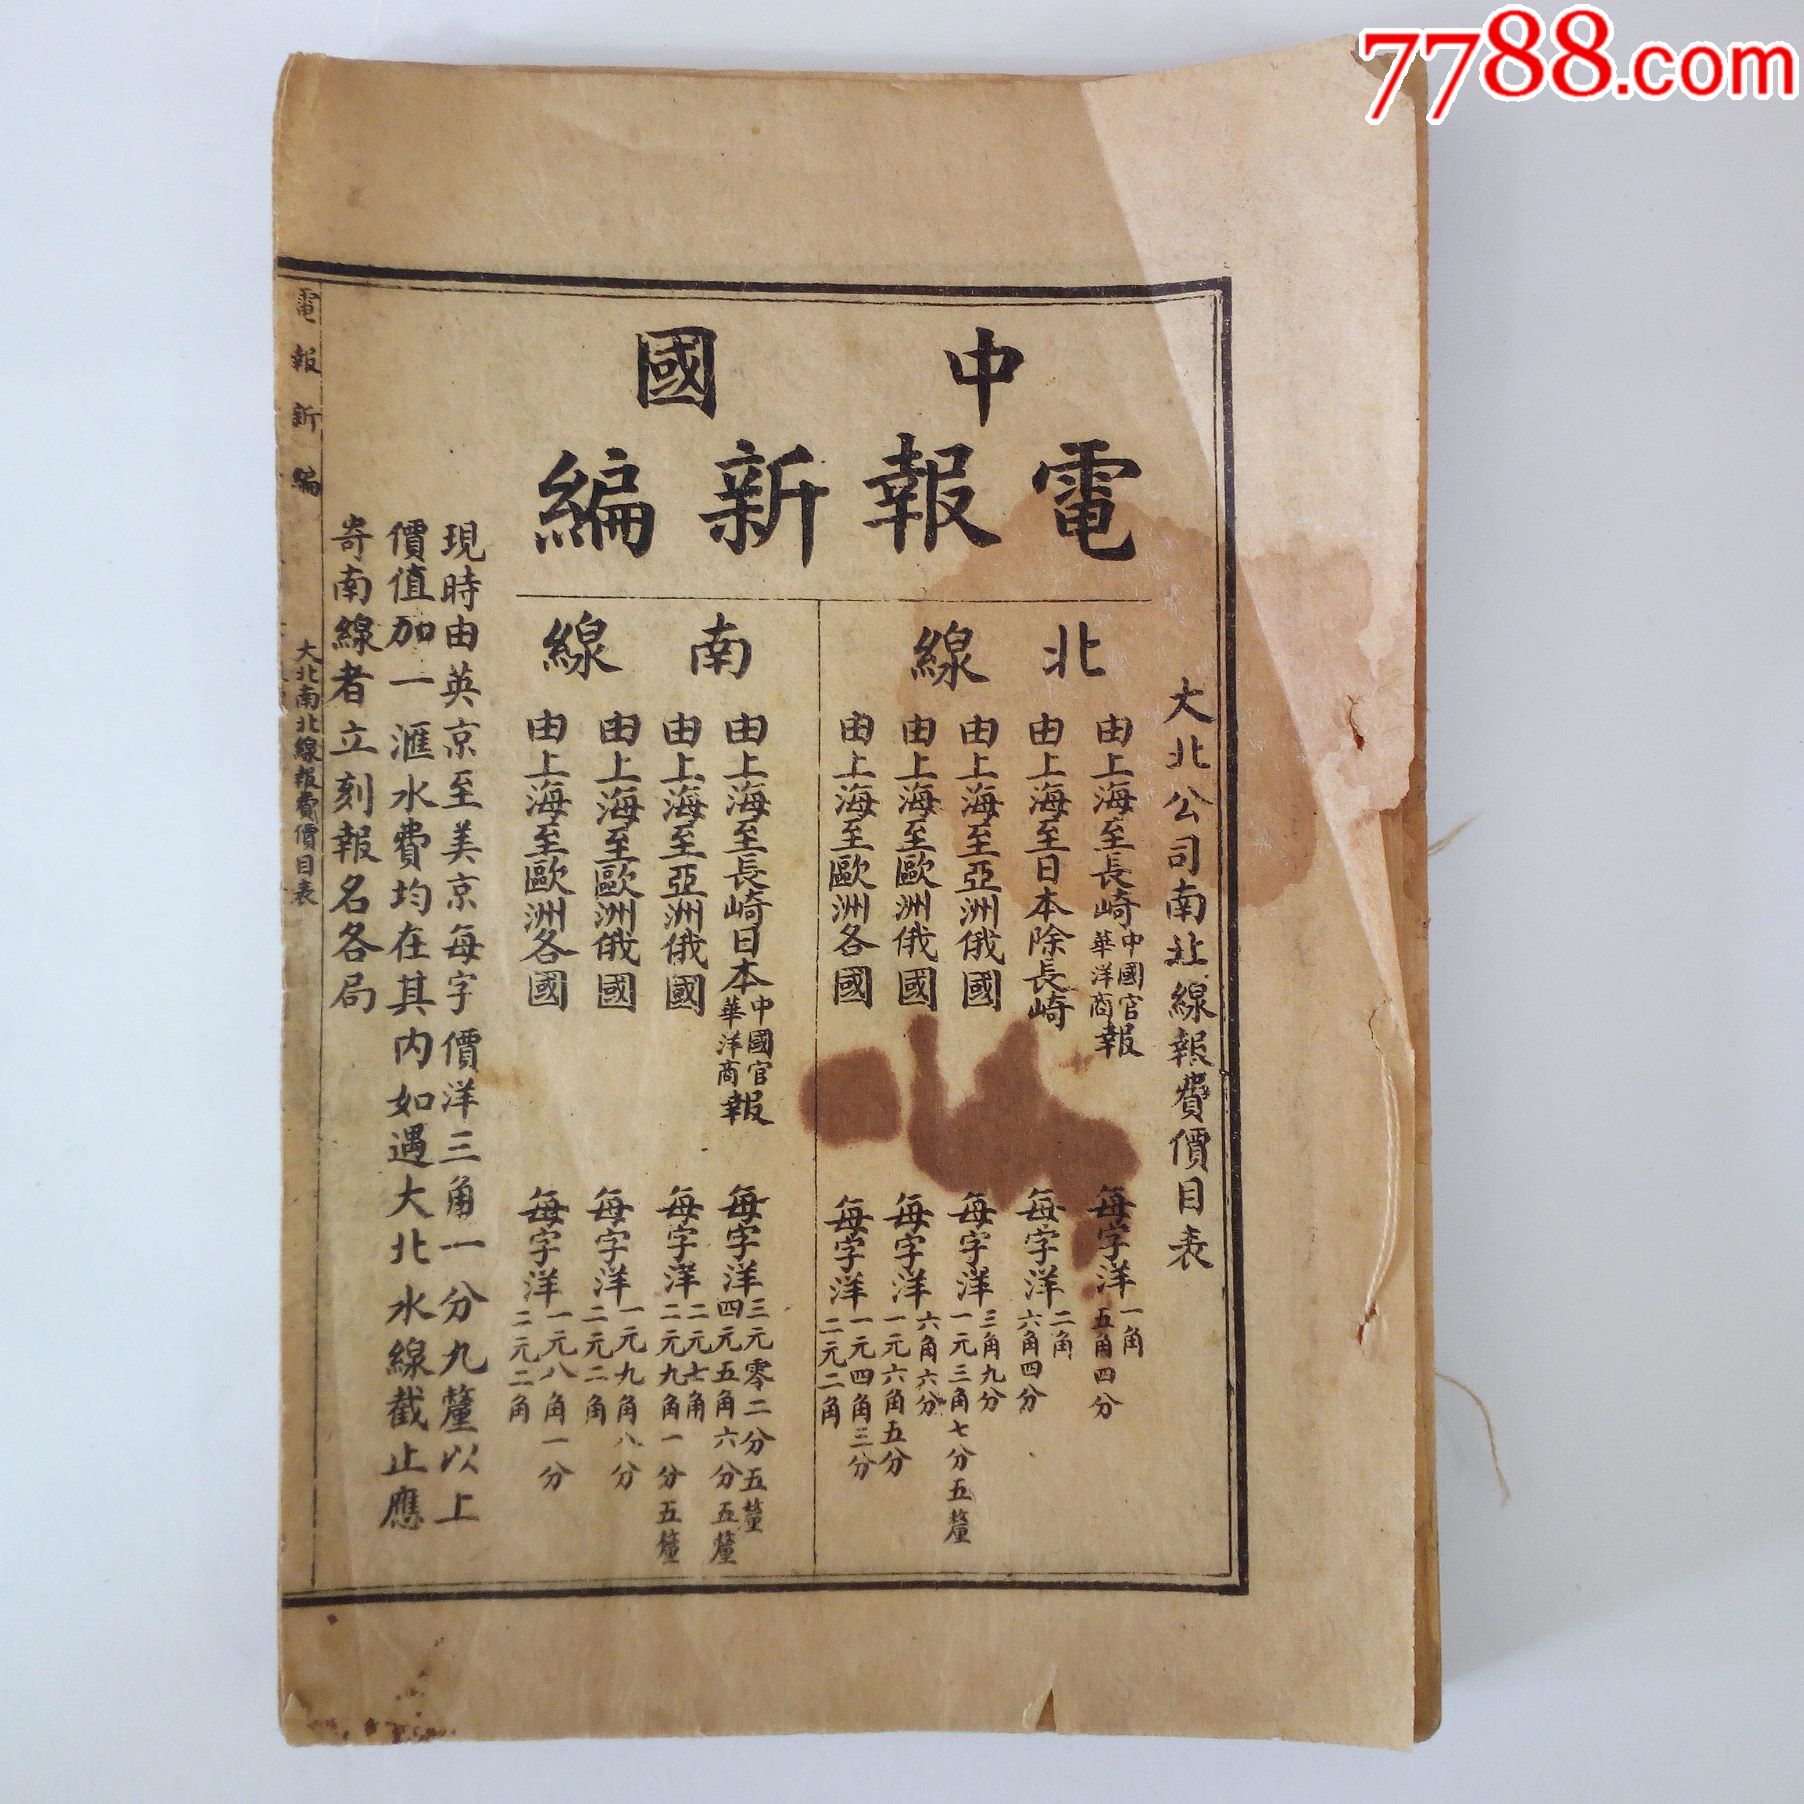 7788.com
中國
電報新編
大北公司南北線報費價目表
北線
由上海至長崎中國官華洋商報 每字洋一角五角四分
由上海至日本除長崎 每字洋二角六角四分
由上海至亞洲俄國 每字洋三角九分一元三角七分五釐
由上海至歐洲俄國 每字洋六角六分一元六角五分
由上海至歐洲各國 每字洋一元四角三分二元二角
南線
由上海至長崎日本中國官華洋商報 每字洋三元零二分五釐四元五角六分五釐
由上海至亞洲俄國 每字洋二元七角二元九角一分五釐
由上海至歐洲俄國 每字洋一元九角八分二元二角
由上海至歐洲各國 每字洋一元八角一分二元二角
現時由英京至美京每字價洋三角一分九釐以上
價值加一滙水費均在其内如遇大北水線截止應
寄南線者立刻報名各局
電報新編
大北南北線報費價目表